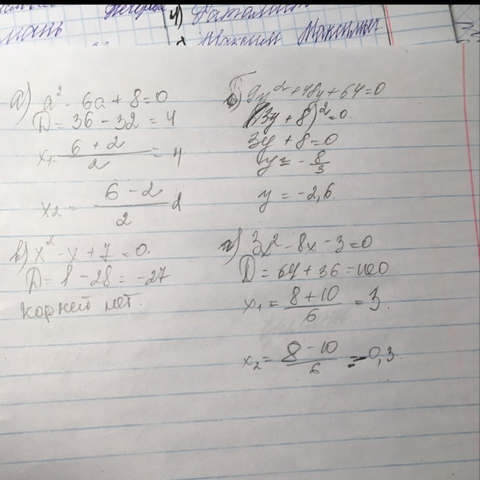 4)
Максим Максимы
а) a² - 6a + 8 = 0
D = 36 - 32 = 4
x₁ = (6 + 2)/2 = 4
x₂ = (6 - 2)/2 2
б) 9y² + 48y + 64 = 0
(3y + 8)² = 0
3y + 8 = 0
y = - 8/3
y = -2,6.
в) x² - x + 7 = 0.
D = 1 - 28 = -27
корней нет.
г) 3x² - 8x - 3 = 0
D = 64 + 36 = 100
x₁ = (8 + 10)/6 = 3.
x₂ = (8 - 10)/6 = -0,3.